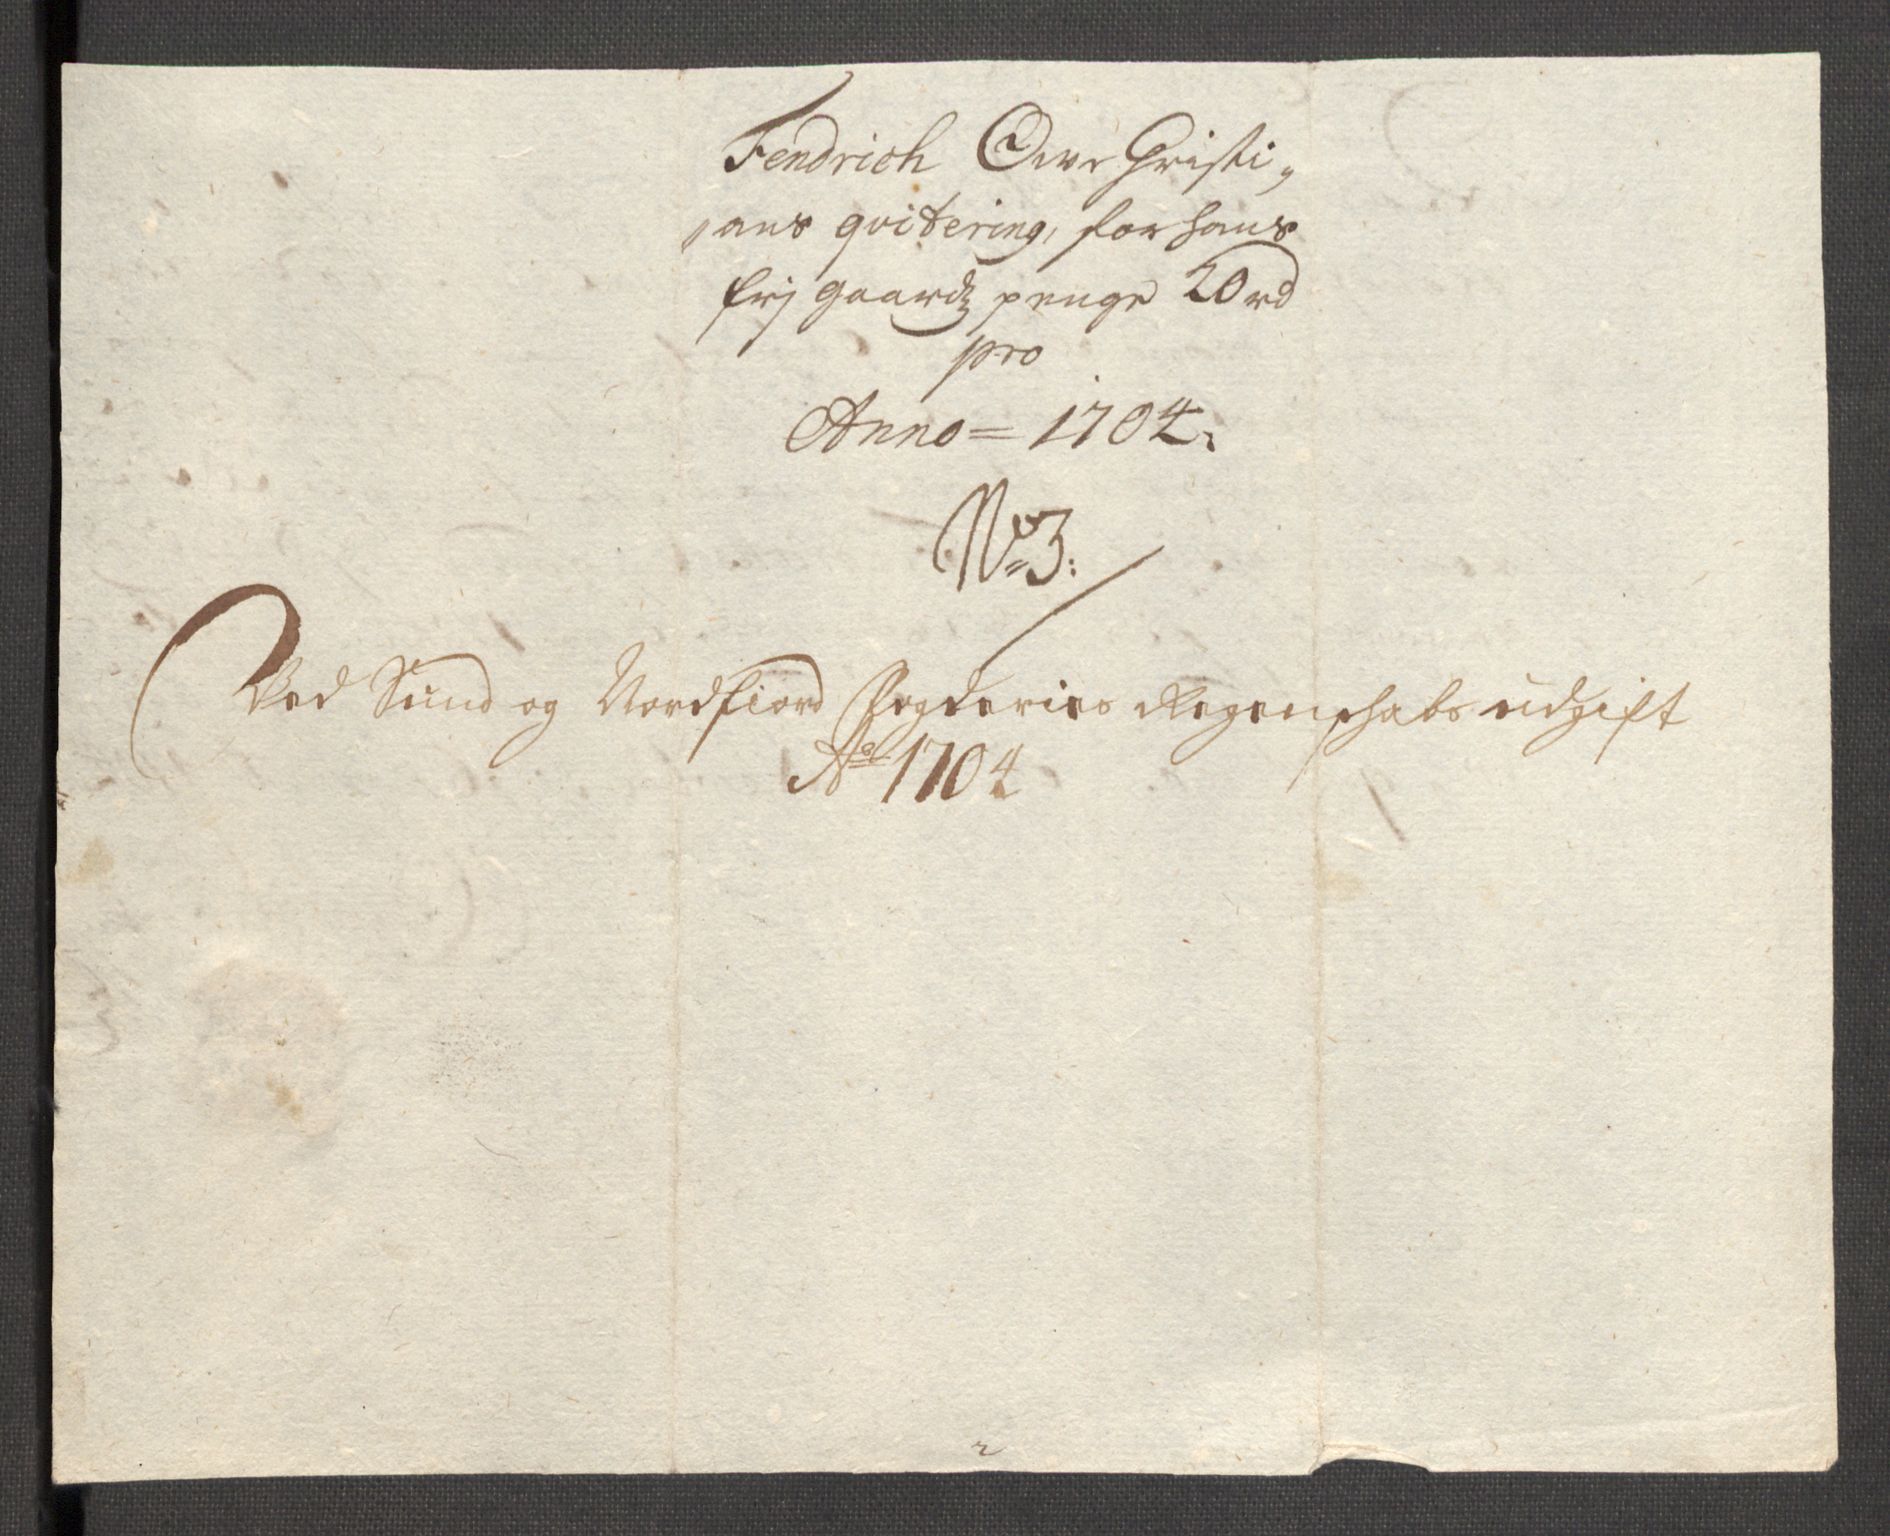 Fendrich Owe Christi,
,ans qvitering, for hans
frj gaardz penge 20 rd
pro
Anno = 1704.
No 3.
Ved Sund og Nordfiord Fogderies Regenschabs udgift
Ao 1704